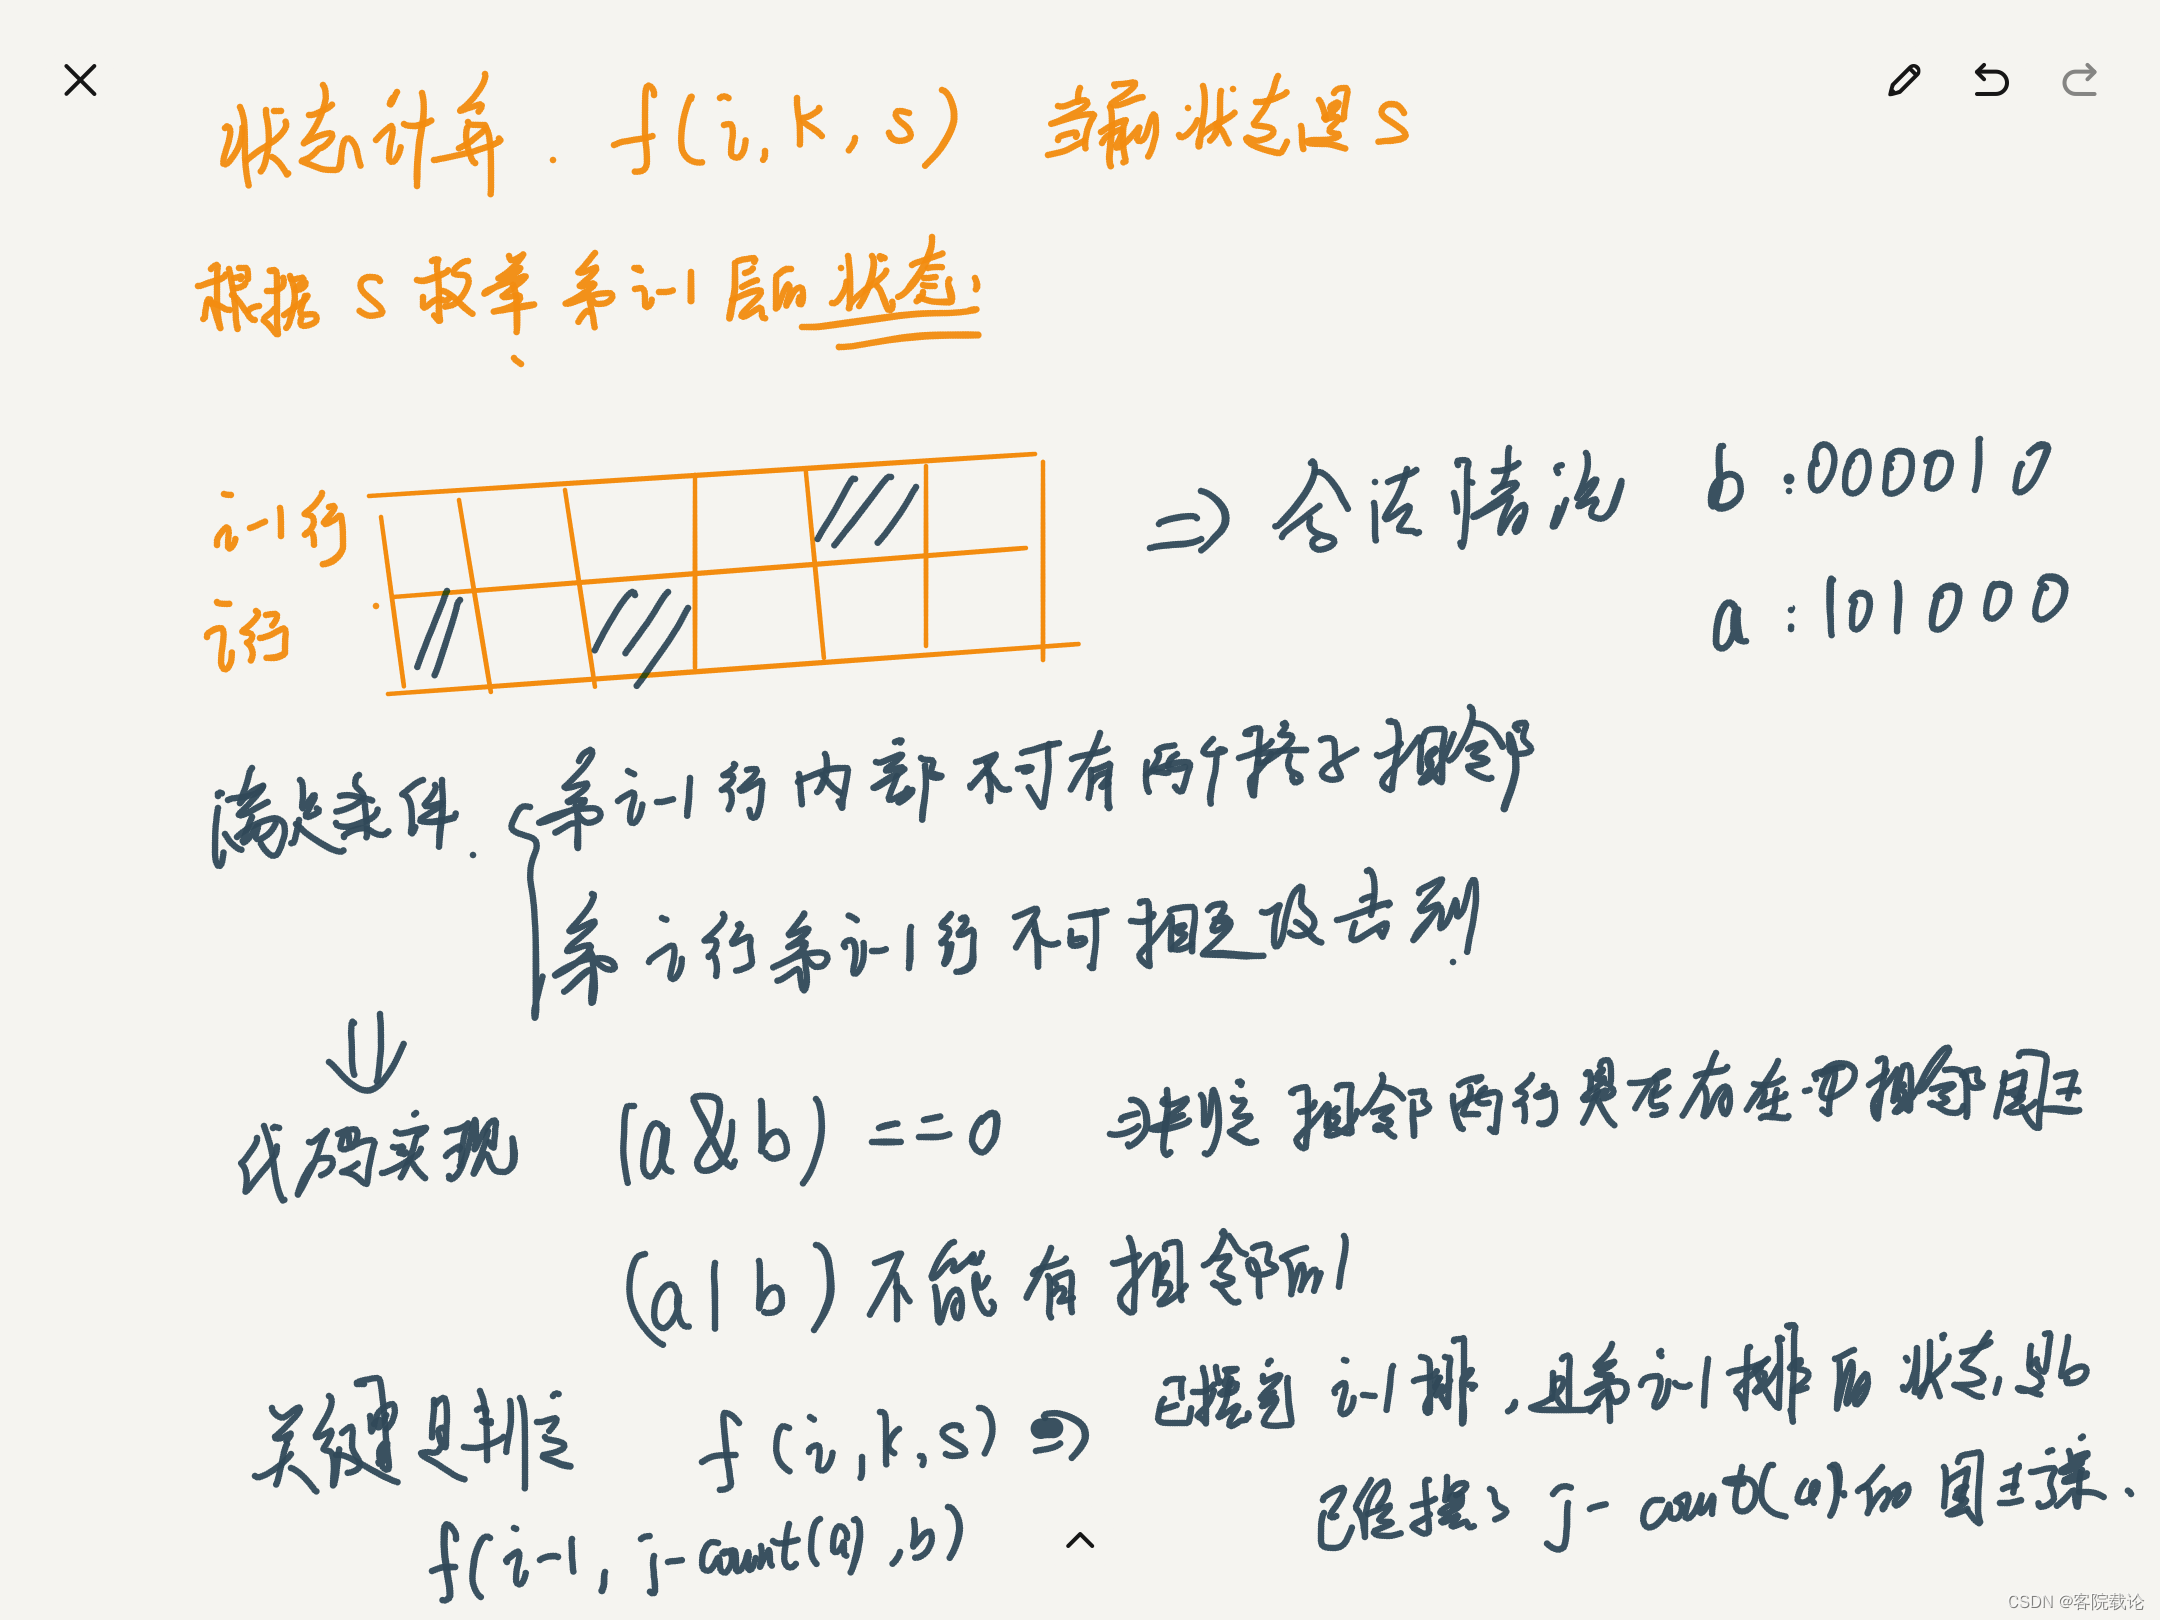 状态计算. f(i,k,s) 当前状态是s
根据 s 枚举 第 i-1 层的状态:
i-1行
i行
⇒ 合法情况 b:000010
a:101000
满足条件. { 第i-1行内部不可有两个格子相邻
第i行第i-1行不可相互攻击到.
⇓
代码实现 (a&b)==0 ⇒判定 相邻两行是否有在一中相邻国王
(a|b)不能有相邻的1
关键是判定 f(i,k,s)⇒
已摆完 i-1排,且第i-1排的状态是b
已经摆了 j-count(a)的国王
f(i-1, j-count(a),b)
CSDN @客院载论